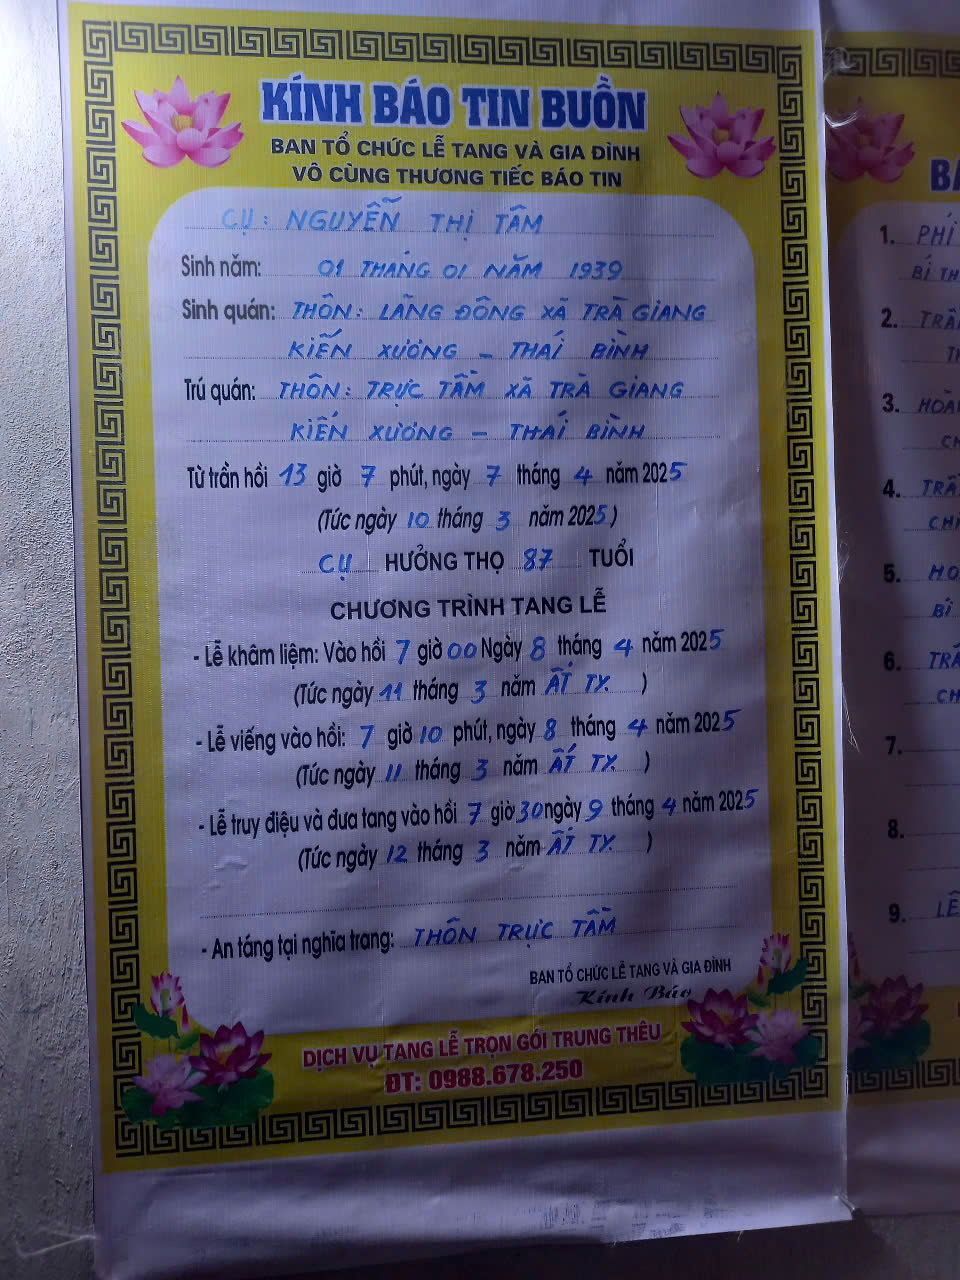 KÍNH BÁO TIN BUỒN
BAN TỔ CHỨC LỄ TANG VÀ GIA ĐÌNH
VÔ CÙNG THƯƠNG TIẾC BÁO TIN
CỤ: NGUYỄN THỊ TÂM
Sinh năm: 01 THÁNG 01 NĂM 1939
Sinh quán: THÔN: LÃNG ĐÔNG XÃ TRÀ GIANG
KIẾN XƯƠNG - THÁI BÌNH
Trú quán: THÔN: TRỰC TẦM XÃ TRÀ GIANG
KIẾN XƯƠNG - THÁI BÌNH
Từ trần hồi 13 giờ 7 phút, ngày 7 tháng 4 năm 2025
(Tức ngày 10 tháng 3 năm 2025)
CỤ HƯỞNG THỌ 87 TUỔI
CHƯƠNG TRÌNH TANG LỄ
- Lễ khâm liệm: Vào hồi 7 giờ 00 Ngày 8 tháng 4 năm 2025
(Tức ngày 11 tháng 3 năm ẤT TỴ )
- Lễ viếng vào hồi: 7 giờ 10 phút, ngày 8 tháng 4 năm 2025
(Tức ngày 11 tháng 3 năm ẤT TỴ )
- Lễ truy điệu và đưa tang vào hồi 7 giờ 30 ngày 9 tháng 4 năm 2025
(Tức ngày 12 tháng 3 năm ẤT TỴ )
- An táng tại nghĩa trang: THÔN TRỰC TẦM
BAN TỔ CHỨC LỄ TANG VÀ GIA ĐÌNH
Kính Báo
DỊCH VỤ TANG LỄ TRỌN GÓI TRUNG THÊU
ĐT: 0988.678.250
1. PHÍ
BÍ TH
2. TRẦ
3. HOÀ
4. TRẦ
5.
BÍ
6. TRẦ
7.
8.
9. LÊ